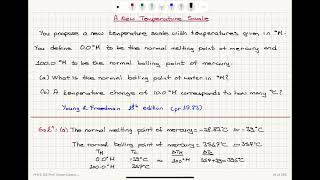 A New Temperature Scale
You propose a new temperature scale with temperatures given in °M.
You define 0.0°M to be the normal melting point of mercury and
100.0°M to be the normal boiling point of mercury.
(a) What is the normal boiling point of water in °M?
(b) A temperature change of 10.0°M corresponds to how many °C?
Young & Freedman 15th edition (pr.17.73)
(a) The normal melting point of mercury = -38.87°C ≈ -39°C
The normal boiling point of mercury = 356.9°C ≈ 357°C
0.0°M -39°C 100°M
100°M 357°C